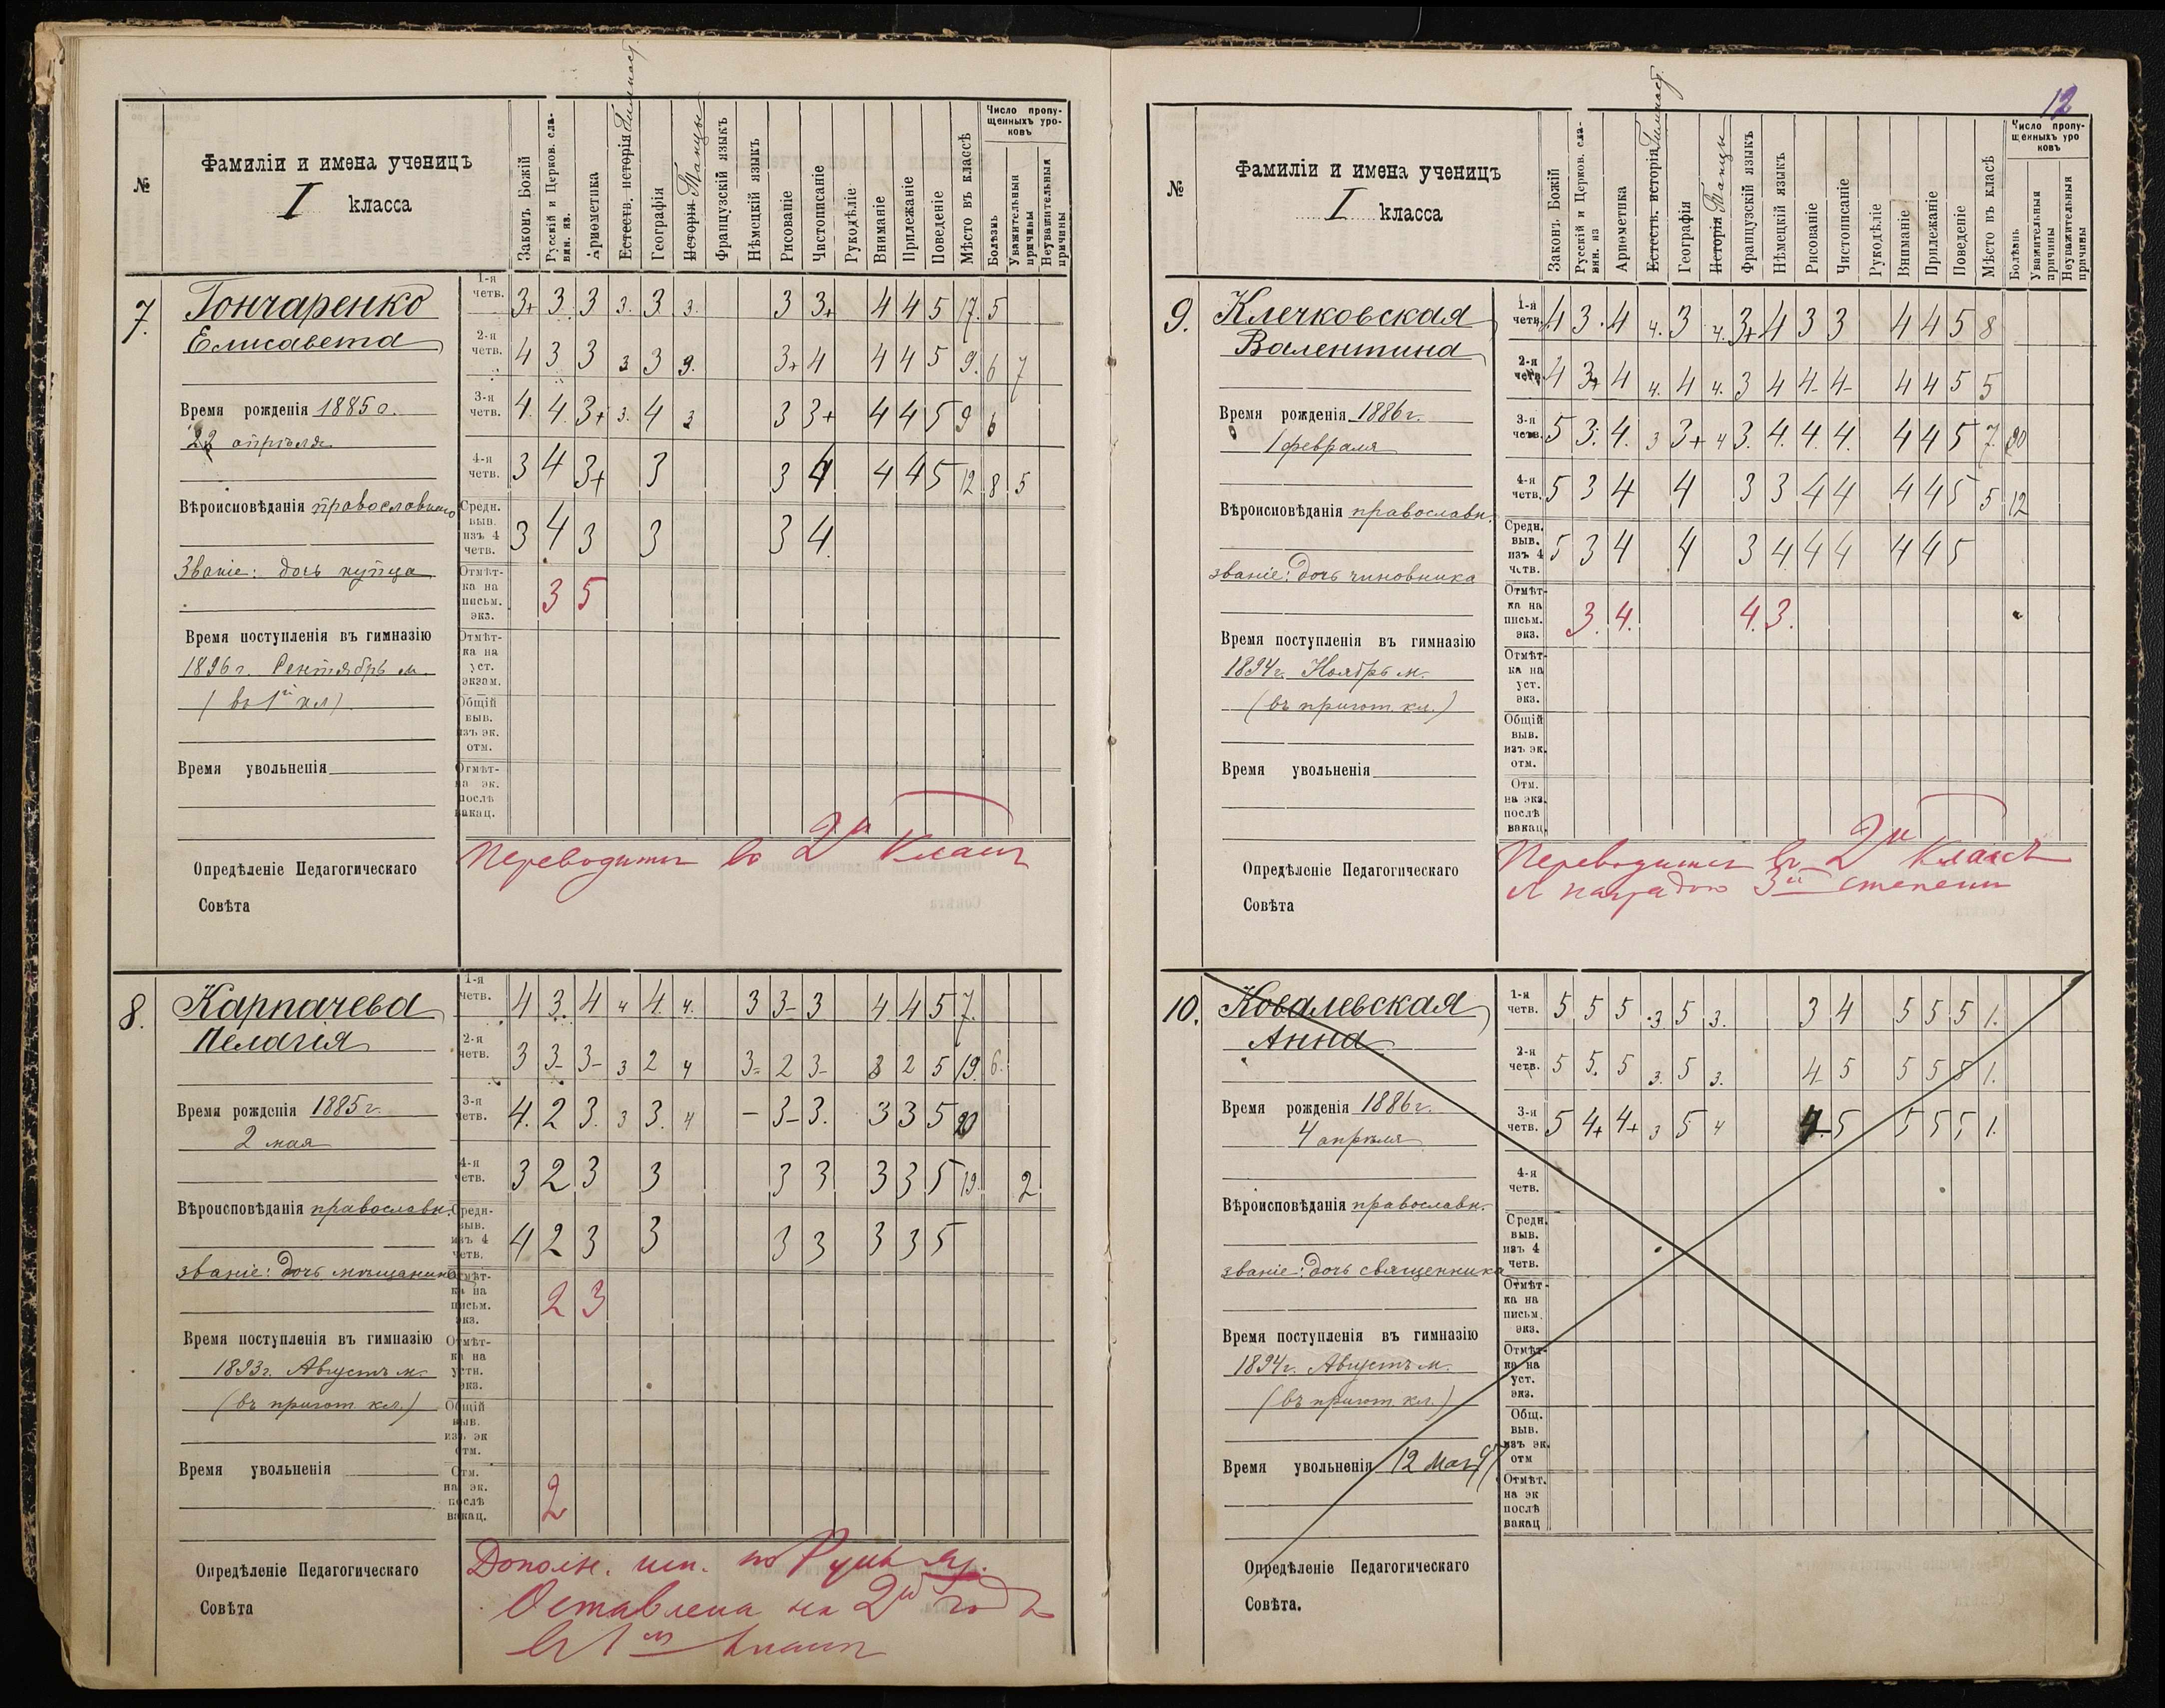 12
№
Фамиліи и имена ученицъ
I класса
Законъ Божій
Русскій и Церков. сла-
вян. яз.
Ариѳметика
Естеств. исторія
Географія
Исторія Танцы
Французскій языкъ
Нѣмецкій языкъ
Рисованіе
Чистописаніе
Рукодѣліе
Вниманіе
Прилежаніе
Поведеніе
Мѣсто въ классѣ
Число пропу-
щенныхъ уро-
ковъ
Болѣзнь
Уважительныя
причины
Неуважительныя
причины
7.
Гончаренко
Елисавета
Время рожденія 1885 г.
22 апрѣля
Вѣроисповѣданія православнаго
Званіе: дочь купца
Время поступленія въ гимназію
1896 г. Сентябрь м.
(въ 1й кл)
Время увольненія
1-я четв. 3+ 3 3 3. 3 3. 3 3+ 4 4 5 17. 5
2-я четв. 4 3 3 3 3 3. 3+ 4 4 4 5 9. 6 7
3-я четв. 4. 4. 3+ 3. 4 3 3 3+ 4 4 5 9 6
4-я четв. 3 4 3+ 3 3 4 4 4 5 12 8 5
Средн. выв. изъ 4 четв. 3 4 3 3 3 4
Отмѣт-ка на письм. экз. 3 5
Отмѣт-ка на уст. экзам.
Общій выв. изъ эк. отм.
Отмѣт-на эк. послѣ вакац.
Опредѣленіе Педагогическаго
Совѣта
Переводится во 2й классъ
8.
Карпачева
Пелагія
Время рожденія 1885 г.
2 мая
Вѣроисповѣданія православн.
званіе: дочь мѣщанина
Время поступленія въ гимназію
1893 г. Августъ м.
(въ пригот кл.)
Время увольненія
1-я четв. 4 3. 4 4 4. 4. 3 3- 3 4 4 5 7.
2-я четв. 3 3- 3- 3 2 4 3= 2 3- 3 2 5 19. 6.
3-я четв. 4. 2 3. 3 3. 4 - 3- 3. 3 3 5 20
4-я четв. 3 2 3 3 3 3 3 3 5 19. 2
Средн- выв. изъ 4 четв. 4 2 3 3 3 3 3 3 5
Отмѣт-ка на письм. экз. 2 3
Отмѣт-ка на устн. экз.
Общій выв. изъ эк отм.
Отм. на эк. послѣ вакац. 2
Опредѣленіе Педагогическаго
Совѣта
Дополн. исп. по Русск яз.
Оставлена на 2й годъ
въ 1м классѣ
№
Фамиліи и имена ученицъ
I класса
Законъ Божій
Русскій и Церков. сла-
вян. яз
Ариѳметика
Естеств. исторія
Географія
Исторія Танцы
Французскій языкъ
Нѣмецкій языкъ
Рисованіе
Чистописаніе
Рукодѣліе
Вниманіе
Прилежаніе
Поведеніе
Мѣсто въ класѣ
Число пропу-
щенныхъ уро
ковъ
Болѣзнь
Уважительныя
причины
Неуяжительныя
причины
9.
Клечковская
Валентина
Время рожденія 1886 г.
1 февраля
Вѣроисповѣданія православн.
званіе: дочь чиновника
Время поступленія въ гимназію
1894 г. Ноябрь м.
(въ пригот. кл.)
Время увольненія
1-я четв. 4 3. 4 4. 3 4. 3+ 4 3 3 4 4 5 8
2-я четв. 4 3+ 4 4. 4 4. 3 4 4- 4- 4 4 5 5
3-я четв. 5 3. 4. 3 3+ 4 3. 4. 4. 4. 4 4 5 7. 20
4-я четв. 5 3 4 4 3 3 4 4 4 4 5 5 12
Средн. выв. изъ 4 четв. 5 3 4 4 3 4 4 4 4 4 5
Отмѣт-ка на письм. экз. 3. 4. 4. 3.
Отмѣт-ка на уст. экз.
Общій выв. изъ эк. отм.
Отм. на экз. послѣ вакац.
Опредѣленіе Педагогическаго
Совѣта
Переводится въ 2й классъ
съ наградою 3й степени
10.
Ковалевская
Анна
Время рожденія 1886 г.
4 апрѣля
Вѣроисповѣданія православн.
званіе: дочь священника
Время поступленія въ гимназію
1894 г. Августъ м.
(въ пригот. кл.)
Время увольненія 12 Мая 97
1-я четв. 5 5 5 3 5 3. 3 4 5 5 5 1.
2-я четв. 5 5. 5 3. 5 3. 4 5 5 5 5 1.
3-я четв. 5 4+ 4+ 3 5 4 4 5 5 5 5 1.
4-я четв.
Средн. выв. изъ 4 четв.
Отмѣт-ка на письм. экз.
Отмѣт-ка на уст. экз.
Общ. выв. изъ эк. отм
Отмѣт. на эк послѣ вакац
Опредѣленіе Педагогическаго
Совѣта.